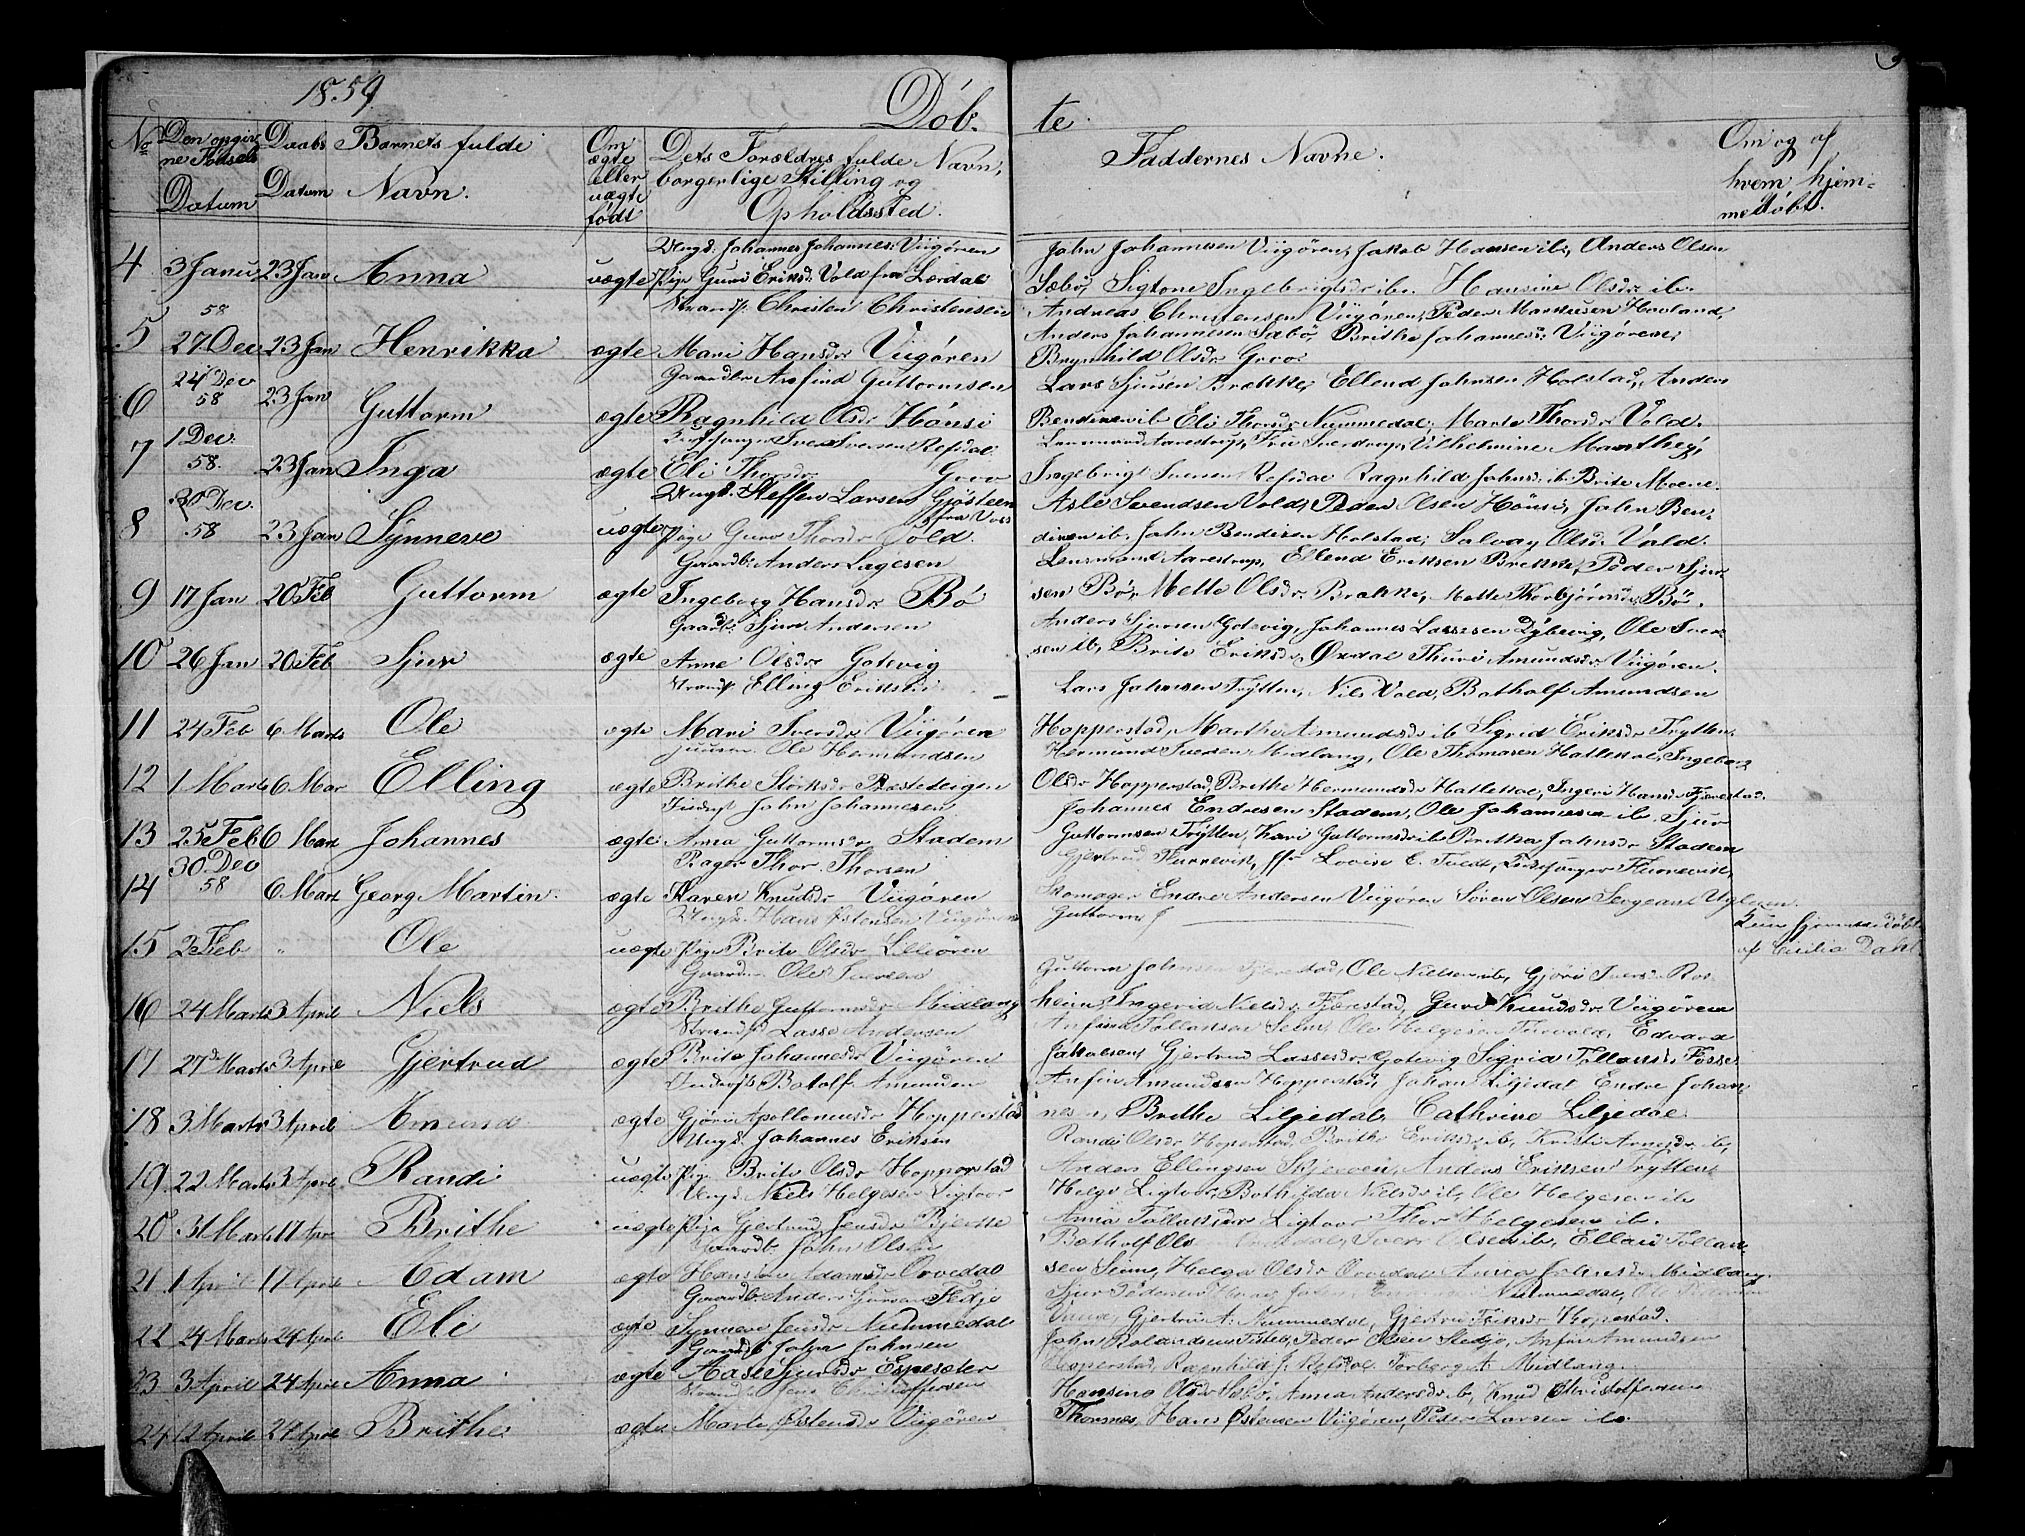 1859
Döb-
te.
No
Den opgiv-
ne Födsels
Datum
Daabs
Datum
Barnets fulde
Navn.
Om
ægte
eller
uægte
födt
Dets Forældres fulde Navn,
borgerlige Stilling og
Opholdssted.
Faddernes Navne.
Om og af
hvem hjem-
medöbt.
4 3 Janu 23 Jan Anna uægte
Ungk. Johannes Johannes: Viigören
Pige Guri Eriksd: Vold fra Lærdal
John Johannesen Viigören, Jakob Hansen ib, Anders Olsen
Sæbö, Sigtone Ingebrigtsdr ib. Hansine Olsdr ib.
5 58 27 Dec 23 Jan Henrikka ægte
Strands. Christen Christensen
Mari Hansdr Viigören
Andreas Christensen Viigören, Peder Markusen Havland,
Anders Johannesen Sæbö, Brithe Johannesd: Viigören,
Brynhild Olsdr Groo
6 24 Dec 58 23 Jan Guttorm ægte
Gaardbr Anfind Guttormsen
Ragnhild Olsdr Hönsi
Lars Sjursen Brekke, Ellend Johnsen Holstad, Anders
Bendixen ib. Eli Thorsdr Nummedal, Marte Thorsdr Vold.
7 1 Dec. 58. 23 Jan Inga ægte
Iver Iversen Refsdal
Eli Thorsdr Groo
Lensmand Aarestrup, Fru Sverdrup, Vilhelmine Manthey,
Ingebrigt Iversen Refsdal Ragnhild Johnsd. ib. Brite Moene.
8 30 Dec. 58 23 Jan Synneve uægte
Ungk. Steffen Larsen Gjösteen
fra Vos
Pige Guro Thorsdr Vold.
Asle Svendsen Vold, Peder Olsen Hönsi, John Ben-
dixen ib. John Bendixen Holstad, Salvay Olsd. Vold.
9 17 Jan 20 Feb Guttorm ægte
Gaardb. Anders Lægesen
Ingeborg Hansdr Bö
Lensmand Aarestrup, Ellend Eriksen Brekke, Peder Sjur-
sen Bö, Mette Olsdr. Brekke, Mette Thorbjörnsdr Bö.
10 26 Jan 20 Feb Sjur ægte
Gaardb. Sjur Andersen
Anne Olsdr Gotevig
Anders Sjursen Gotevig, Johannes Lassesen Dybevig, Ole Iver-
sen ib, Brite Eriksdr, Ordal Thuri Amundsdr Viigören.
11 24 Feb 6 Marts Ole ægte
Strands. Elling Eriksen
Mari Iversdr Viigören
Lars Johnsen Trytten, Nils Vold, Botholf Amundsen
Hopperstad, Marthe Amundsdr ib Sigrid Eriksdr Trytten.
12 1 Marts 6 Mar Elling ægte
Ole Hermundsen
Brithe Störksdr
Hermund Iversen Midlang, Ole Thomasen Hatlekol, Ingeborg
Olsdr Hopperstad, Brithe Hermundsdr Hatlekol, Ingeri Hansdr Fjærestad.
13 25 Feb 6 Mars Johannes ægte
John Johannesen
Anna Guttormsdr Stadem
Johannes Endresen Stadem, Ole Johannesen ib. Sjur
Guttormsen Trytten, Kari Guttormsdr ib Pertha Johnsdr Stadem
14 30 Dec 58 6 Mars Georg Martin ægte
Bager Thor Thorsen
Karen Knudsdr Viigören
Gjertrud Flurrevik, Lovise E. Tvedt, Flurrevik,
Skomager Endre Andersen Viigören Sören Olsen Sergeant
15 2 Feb " Ole uægte
Ungk. Hans Östensen Viigören
Pige Brite Olsdr Lilleören
Kun hjemmedöbt
af Cecilia Dahl
16 24 Marts 3 April Niels ægte
Gaardbr Ole Iversen
Brithe Guttormsdr Midlang
Guttorm Johnsen Fjærestad, Ole Nielsen ib, Gjöri Iversdr Ros-
heim, Ingerid Nielsdr Fjærestad, Guri Knudsdr. Viigören
17 27de Marts 3 April Gjertrud ægte
Strands Lasse Andersen
Brita Johannesdr Viigören
Anfind Tollaksen Seim, Ole Helgesen Edvard
Jakobsen, Gjertrud Lassesdr. Gotevig Sigrid Tollaksd: Fosse
18 3 Marts 3 April Amund ægte
Botolf Amundsen
Gjöri Apolloniusdr Hopperstad
Anfin Amundsen Hopperstad, Johan Liljedal Endre Johan-
nesen, Brithe Liljedal, Cathrine Liljedal.
19 22 Marts 3 April Randi uægte
Ungk. Johannes Eriksen
Pige Brite Olsdr Hopperstad
Randi Olsdr Hopperstad, Brithe Eriksdr ib, Kristi Arnesdr ib,
Anders Ellingsen Skjerven, Anders Eriksen Trytten,
20 31 Marts 17 Apr Brithe uægte
Ungk. Niels Helgesen Ligtvor
Pige Gjertrud Jensdr Bjerke
Helge Ligtvor, Bothilda Nielsdr ib, Ole Helgesen ib
Anna Tollaksdr Ligtvor Thor Helgesen ib.
21 1 April 17 April Adam ægte
Gaardb. John Olsen
Adamsdr Orvedal
Botholf Ols Orvedal, Iver Olsen ib, Ellend Tollak-
sen Seim, Helga Olsdr Orvedal Anna Johnsdr Midlang.
22 24 Marts 24 April Eli ægte
Gaardb. Anders Sjursen Stedje
Synneve Jensdr Nummedal
Sjur Pedersen Nummedal, Ole
Gjertru A. Nummedal, Gjertru Eriksdr Hopperstad.
23 3 April 24 April Anna ægte
Gaardb John Johnsen
Aase Sjursdr Espesæter
John Rolandsen Peder Olsen Stedje, Anfin Amundsen
Hopperstad, Ragnhild J. Refsdal Torberg A. Midlang.
24 12 April 24 April Brithe ægte
Strands. Jens Christoffersen
Marte Östensdr Viigören
Hansina Olsdr Sæbö, Anna Andersdr ib, Knud Christoffersen
Thorsnes, Hans Östensen Viigören, Peder Larsen ib.